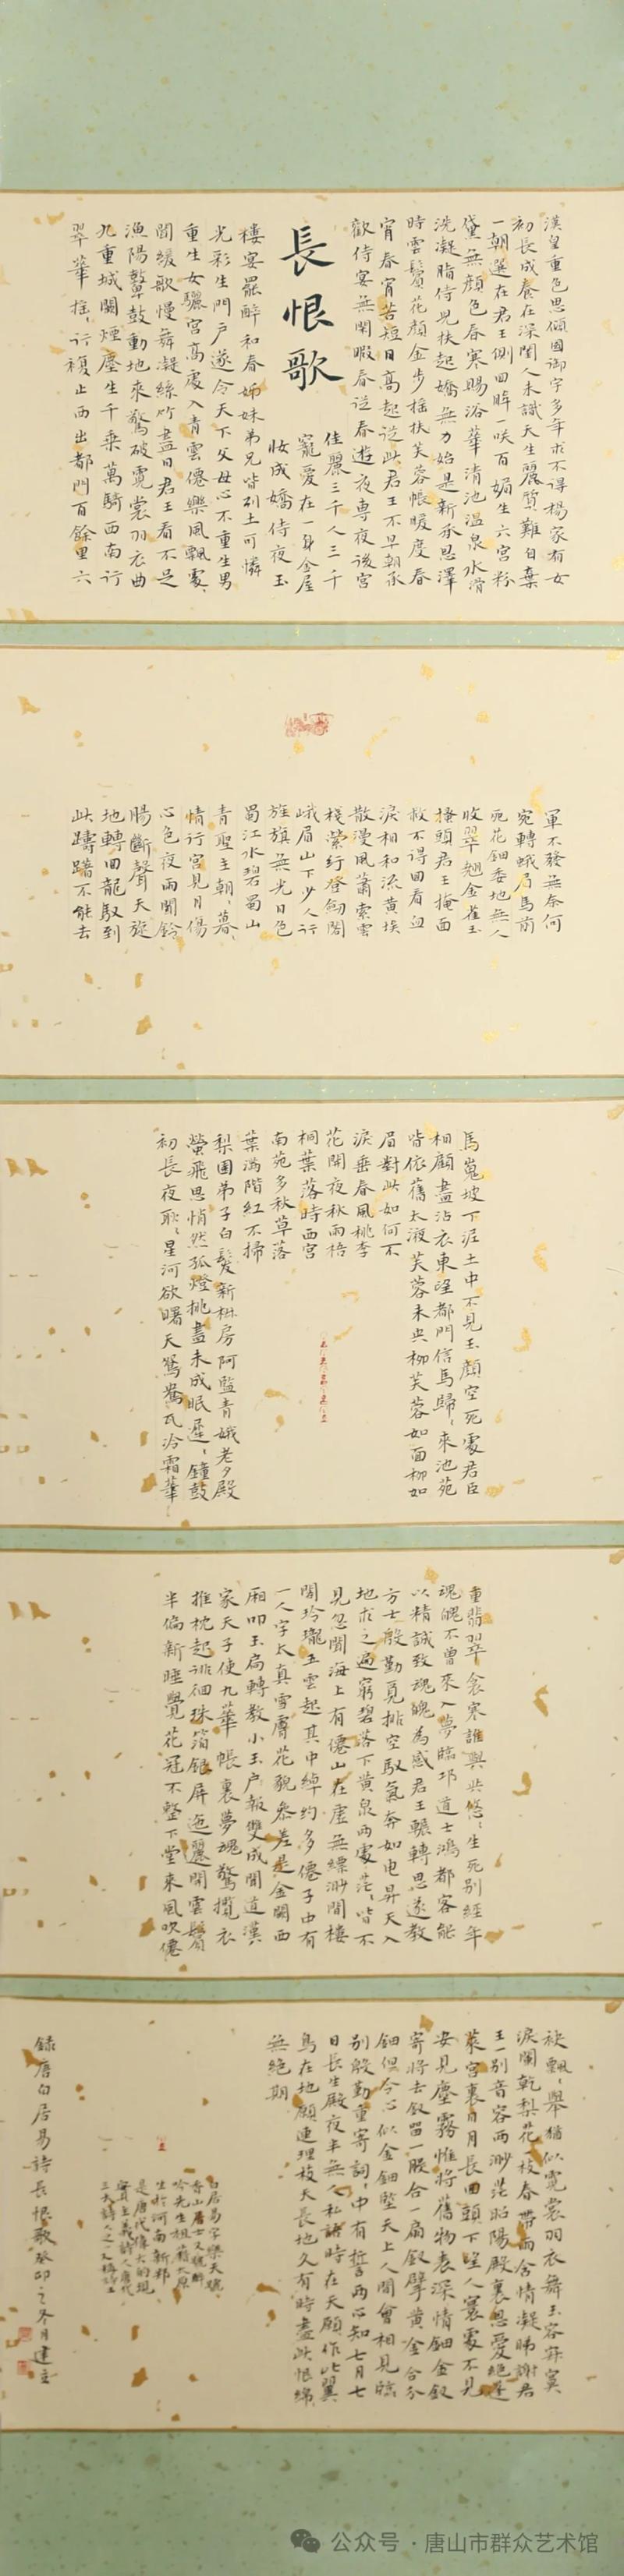 漢皇重色思傾國御宇多年求不得楊家有女
初長成養在深閨人未識天生麗質難自棄
一朝選在君王側回眸一笑百媚生六宮粉
黛無顔色春寒賜浴華清池温泉水滑
洗凝脂侍兒扶起嬌無力始是新承恩澤
時雲鬢花顔金步摇芙蓉帳暖度春
宵春宵苦短日高起從此君王不早朝承
歡侍宴無閑暇春從春遊夜專夜後宮
長恨歌
佳麗三千人三千
寵愛在一身金屋
妝成嬌侍夜玉
樓宴罷醉和春姊妹弟兄皆列土可憐
光彩生門户遂令天下父母心不重生男
重生女驪宮高處入青雲僊樂風飄處、
聞緩歌慢舞凝絲竹盡日君王看不足
漁陽鼙鼓動地來驚破霓裳羽衣曲
九重城闕煙塵生千乘萬騎西南行
翠華摇、行復止西出都門百餘里六
軍不發無奈何
宛轉蛾眉馬前
死花鈿委地無人
收翠翹金雀玉
搔頭君王掩面
救不得回看血
淚相和流黄埃
散漫風蕭索雲
棧縈紆登劒閣
峨眉山下少人行
旌旗無光日色
蜀江水碧蜀山
青聖主朝、暮、
情行宮見月傷
心色夜雨聞鈴
腸斷聲天旋
地轉回龍馭到
此躊躇不能去
馬嵬坡下泥土中不見玉顔空死處君臣
相顧盡沾衣東望都門信馬歸、來池苑
皆依舊太液芙蓉未央柳芙蓉如面柳如
眉對此如何不
淚垂春風桃李
花開夜秋雨梧
桐葉落時西宮
南苑多秋草落
葉滿階紅不掃
梨園弟子白髮新椒房阿監青娥老夕殿
螢飛思悄然孤燈挑盡未成眠遲、鐘鼓
初長夜耿、星河欲曙天鴛鴦瓦冷霜華
重翡翠衾寒誰與共悠、生死别經年
魂魄不曾來入夢臨邛道士鴻都客能
以精誠致魂魄為感君王輾轉思遂教
方士殷勤覓排空馭氣奔如电昇天入
地求之遍窮碧落下黄泉两處茫、皆不
見忽聞海上有僊山在虛無縹渺間樓
閣玲瓏五雲起其中綽约多僊子中有
一人字太真雪膚花貌參差是金闕西
厢叩玉扃轉教小玉户報雙成聞道漢
家天子使九華帳裏夢魂驚攬衣
推枕起徘徊珠箔銀屏迤麗開雲鬢
半偏新睡覺花冠不整下堂來風吹僊
袂飄、舉猶似霓裳羽衣舞玉容寂寞
淚闌乾梨花一枝春帶雨含情凝睇謝君
王一别音容两渺茫昭陽殿裏恩愛絕蓬
萊宮裏日月長回頭下望人寰處不見
安見塵霧惟將舊物表深情鈿金釵
寄將去釵留一股合一扇釵擘黄金合分
鈿但令心似金鈿堅天上人間會相見臨
别殷勤重寄詞、中有誓两心知七月七
日長生殿夜半無人私語時在天願作比翼
鳥在地願連理枝天長地久有時盡此恨綿
無絕期
白居易字樂天號
香山居士又號醉
吟先生祖籍太原
生於河南新郑
是唐代偉大的現
實主義詩人唐代
三大詩人之一
録唐白居易詩長恨歌癸卯之冬月建立
公众号·唐山市群众艺术馆